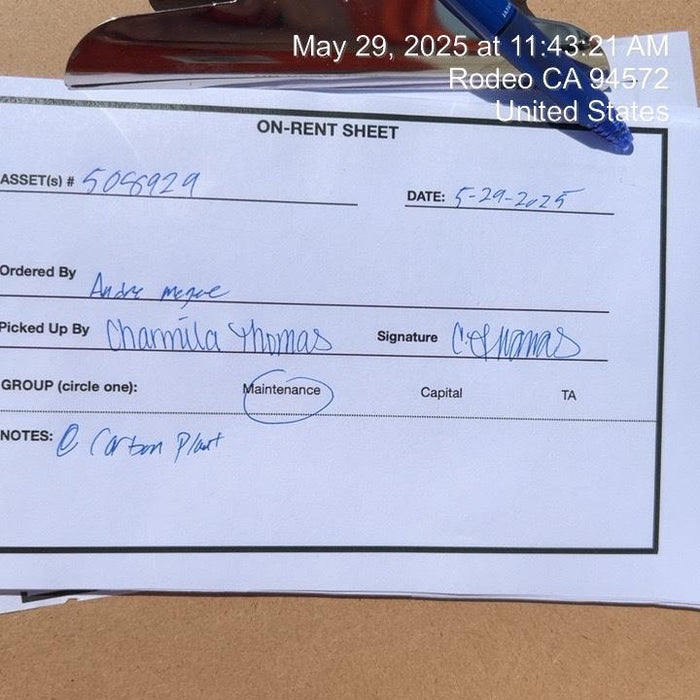 May 29, 2025 at 11:43:21 AM
Rodeo CA 94572
United States
ON-RENT SHEET
ASSET(s) # 5098929
DATE: 5-29-2025
Ordered By Andre
Picked Up By Charmila Thomas Signature C. Thomas
GROUP (circle one): Maintenance Capital TA
NOTES: @ Carbon Plant